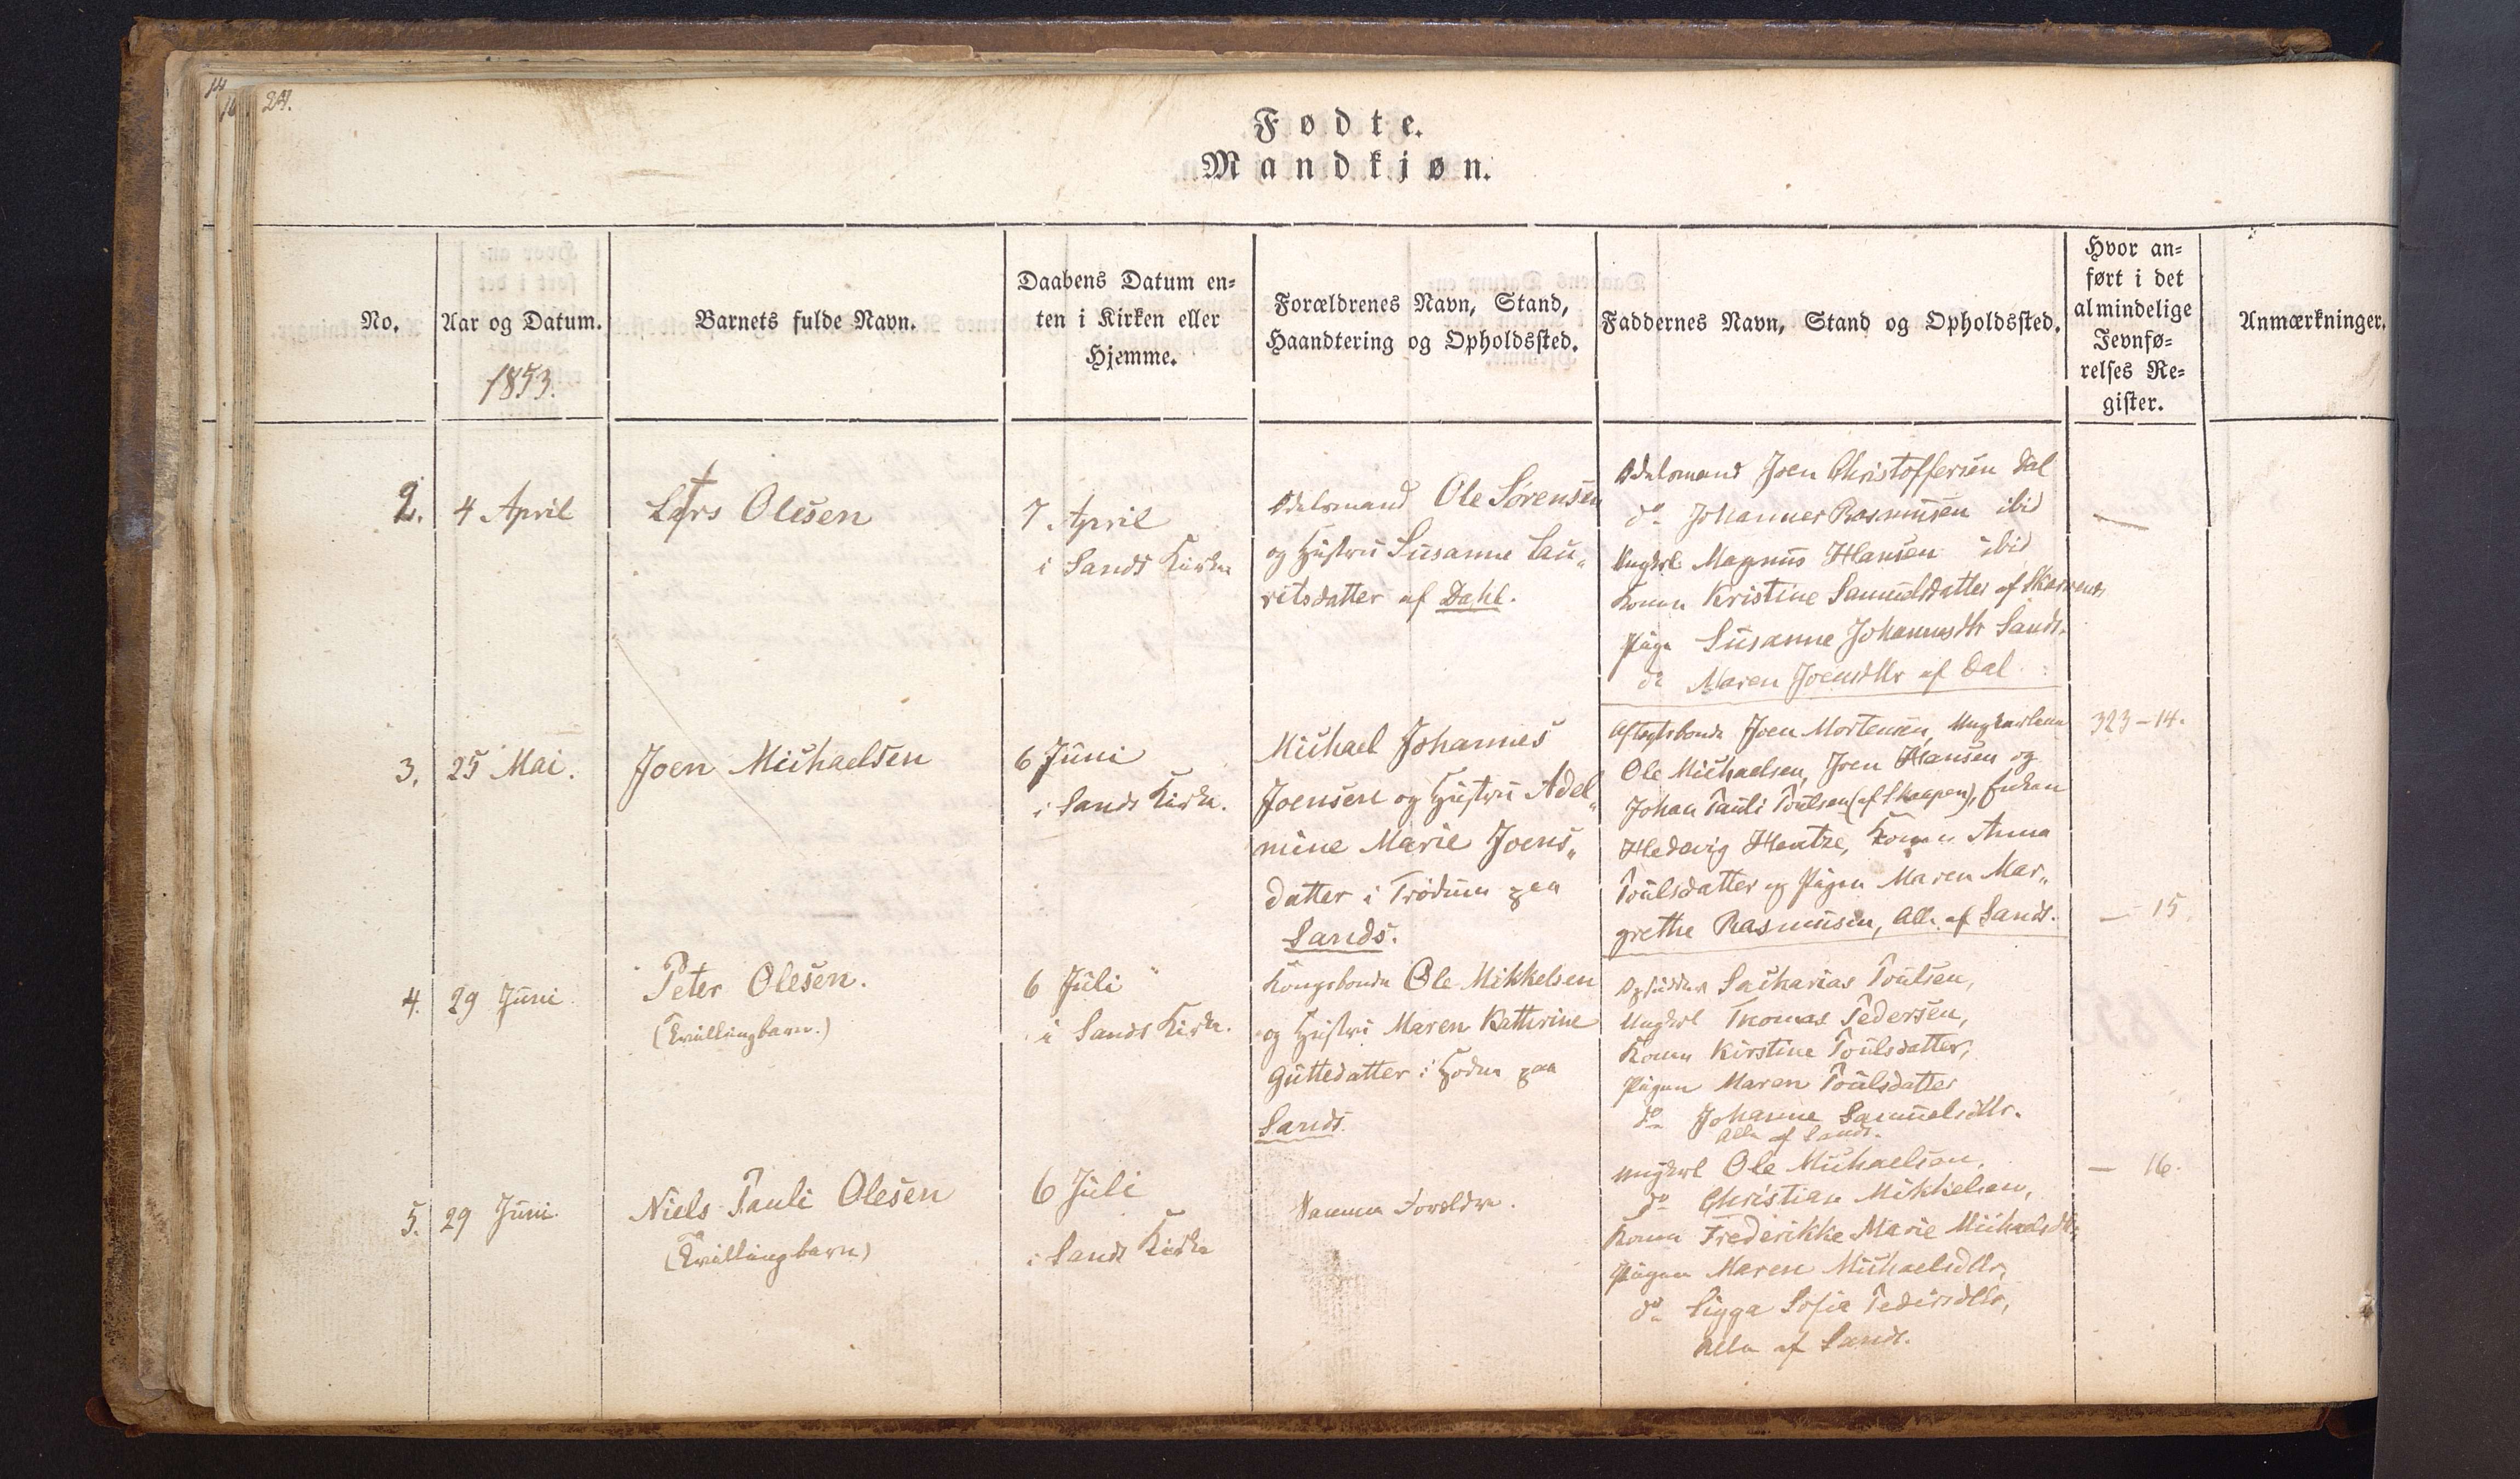 14
16
24.
Fødte.
Mandkjøn.
No.
Aar og Datum.
1853.
Barnets fulde Navn.
Daabens Datum en=
ten i Kirken eller
Hjemme.
Forældrenes Navn, Stand,
Haandtering og Opholdssted.
Faddernes Navn, Stand og Opholdssted.
Hvor an=
ført i det
almindelige
Jevnfø=
relses Re=
gister.
Anmærkninger.
2.
4 April
Lars Olesen
7 April
i Sands Kirke
Odelsmand Ole Sørensen
og Hustru Susanne Lau„
ritsdatter af Dahl.
Odelsmand Joen Christoffersen Dal
do Johannes Rasmusen ibid
Ungkrl Magnus Hansen ibid
Konen Kristine Samuelsdatter af
Pige Susanne Johannesdtr Sands.
do Maren Joensdttr af Dal
—
3.
25 Mai.
Joen Michaelsen
6 Juni
i Sands Kirke.
Michael Johannes
Joensen og Hustru Adel„
mine Marie Joens„
datter i Trødum paa
Sands.
Aftegtsbonde Joen Mortensen, Ungkarlene
Ole Michaelsen, Joen Hansen og
Johan Pauli Poulsen (af Skaapen), Enken
Hedevig Hentze, Konen Anna
Poulsdatter og Pigen Maren Mar„
grethe Rasmusen, Alle af Sands.
323 – 14.
4.
29 Juni
Peter Olesen.
(Tvillingbarn.)
6 Juli
i Sands Kirke.
Kongsbonde Ole Mikkelsen
og Hustru Maren Kathrine
Guttedatter i paa
Sands.
Opsidder Sacharias Poulsen,
Ungkrl Thomas Pedersen,
Konen Kirstine Poulsdatter,
Pigen Maren Poulsdatter
do Johanne Samuelsdttr.
Alle af Sands.
— 15.
5.
29 Juni
Niels Pauli Olesen
(Tvillingbarn)
6 Juli
i Sands Kirke
Samme Forældre.
Ungkrl Ole Michaelsen,
do Christian Mikkelsen,
Konen Frederikke Marie Michaelsdtr,
Pigen Maren Michaelsdttr,
do Sigga Sofie Pedersdttr,
Alle af Sands.
— 16.